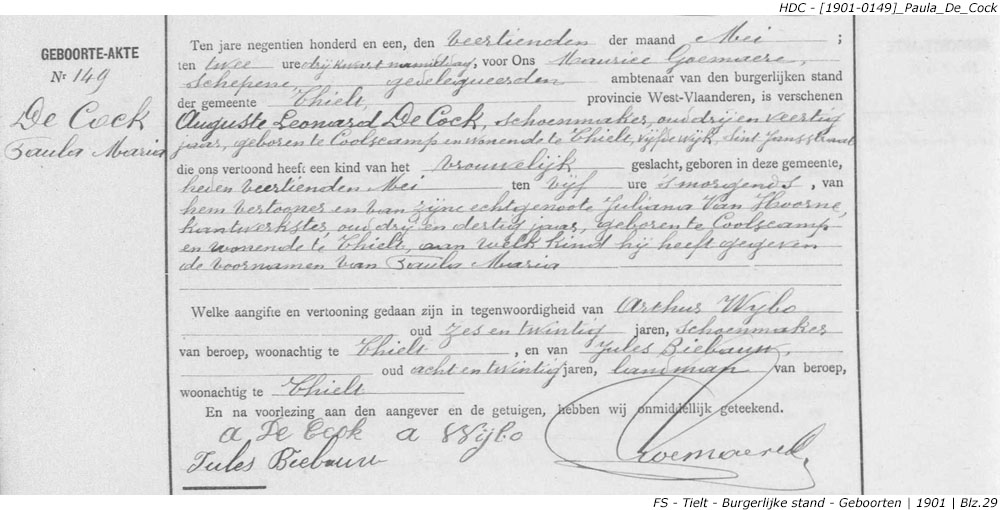 HDC - [1901-0149]_Paula_De_Cock
GEBOORTE-AKTE
Nr 149
De Cock
Paula Maria
Ten jare negentien honderd en een, den veertienden der maand Mei ;
ten twee ure drij kwart namiddag, voor Ons Maurice Goemaere,
schepene gedelegueerden ambtenaar van den burgerlijken stand
der gemeente Thielt, provincie West-Vlaanderen, is verschenen
Auguste Leonard De Cock, schoenmaker, oud drij en veertig
jaar, geboren te Coolscamp en wonende te Thielt, vijfde wijk, Sint Jansstraat
die ons vertoond heeft een kind van het vrouwelijk geslacht, geboren in deze gemeente,
heden veertienden Mei ten vijf ure 's morgends, van
hem vertooner en van zijne echtgenoote Juliana Van Hoorne,
kantwerkster, oud drij en dertig jaar, geboren te Coolscamp
en wonende te Thielt, aan welk kind hij heeft gegeven
de voornamen van Paula Maria
Welke aangifte en vertooning gedaan zijn in tegenwoordigheid van Arthur Wybo
oud zes en twintig jaren, schoenmaker
van beroep, woonachtig te Thielt , en van Jules Biebauw,
oud acht en twintig jaren, landman van beroep,
woonachtig te Thielt
En na voorlezing aan den aangever en de getuigen, hebben wij onmiddellijk geteekend.
A De Cock A Wybo
Jules Biebauw Goemaere
FS - Tielt - Burgerlijke stand - Geboorten | 1901 | Blz.29